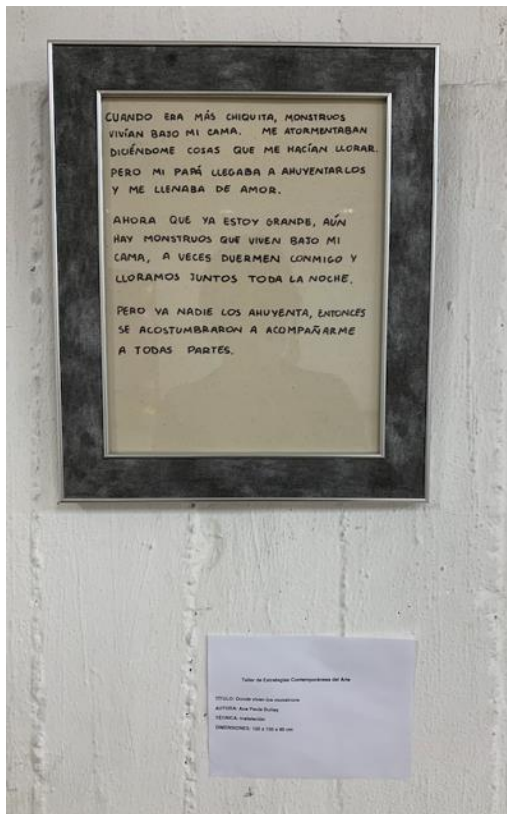 CUANDO ERA MÁS CHIQUITA, MONSTRUOS
VIVÍAN BAJO MI CAMA. ME ATORMENTABAN
DICIÉNDOME COSAS QUE ME HACÍAN LLORAR.
PERO MI PAPÁ LLEGABA A AHUYENTARLOS
Y ME LLENABA DE AMOR.
AHORA QUE YA ESTOY GRANDE, AÚN
HAY MONSTRUOS QUE VIVEN BAJO MI
CAMA, A VECES DUERMEN CONMIGO Y
LLORAMOS JUNTOS TODA LA NOCHE.
PERO YA NADIE LOS AHUYENTA, ENTONCES
SE ACOSTUMBRARON A ACOMPAÑARME
A TODAS PARTES.
Taller de Estrategias Contemporáneas del Arte
TÍTULO: Donde viven los monstruos
AUTORA: Ana Paula
TÉCNICA: Instalación
DIMENSIONES: